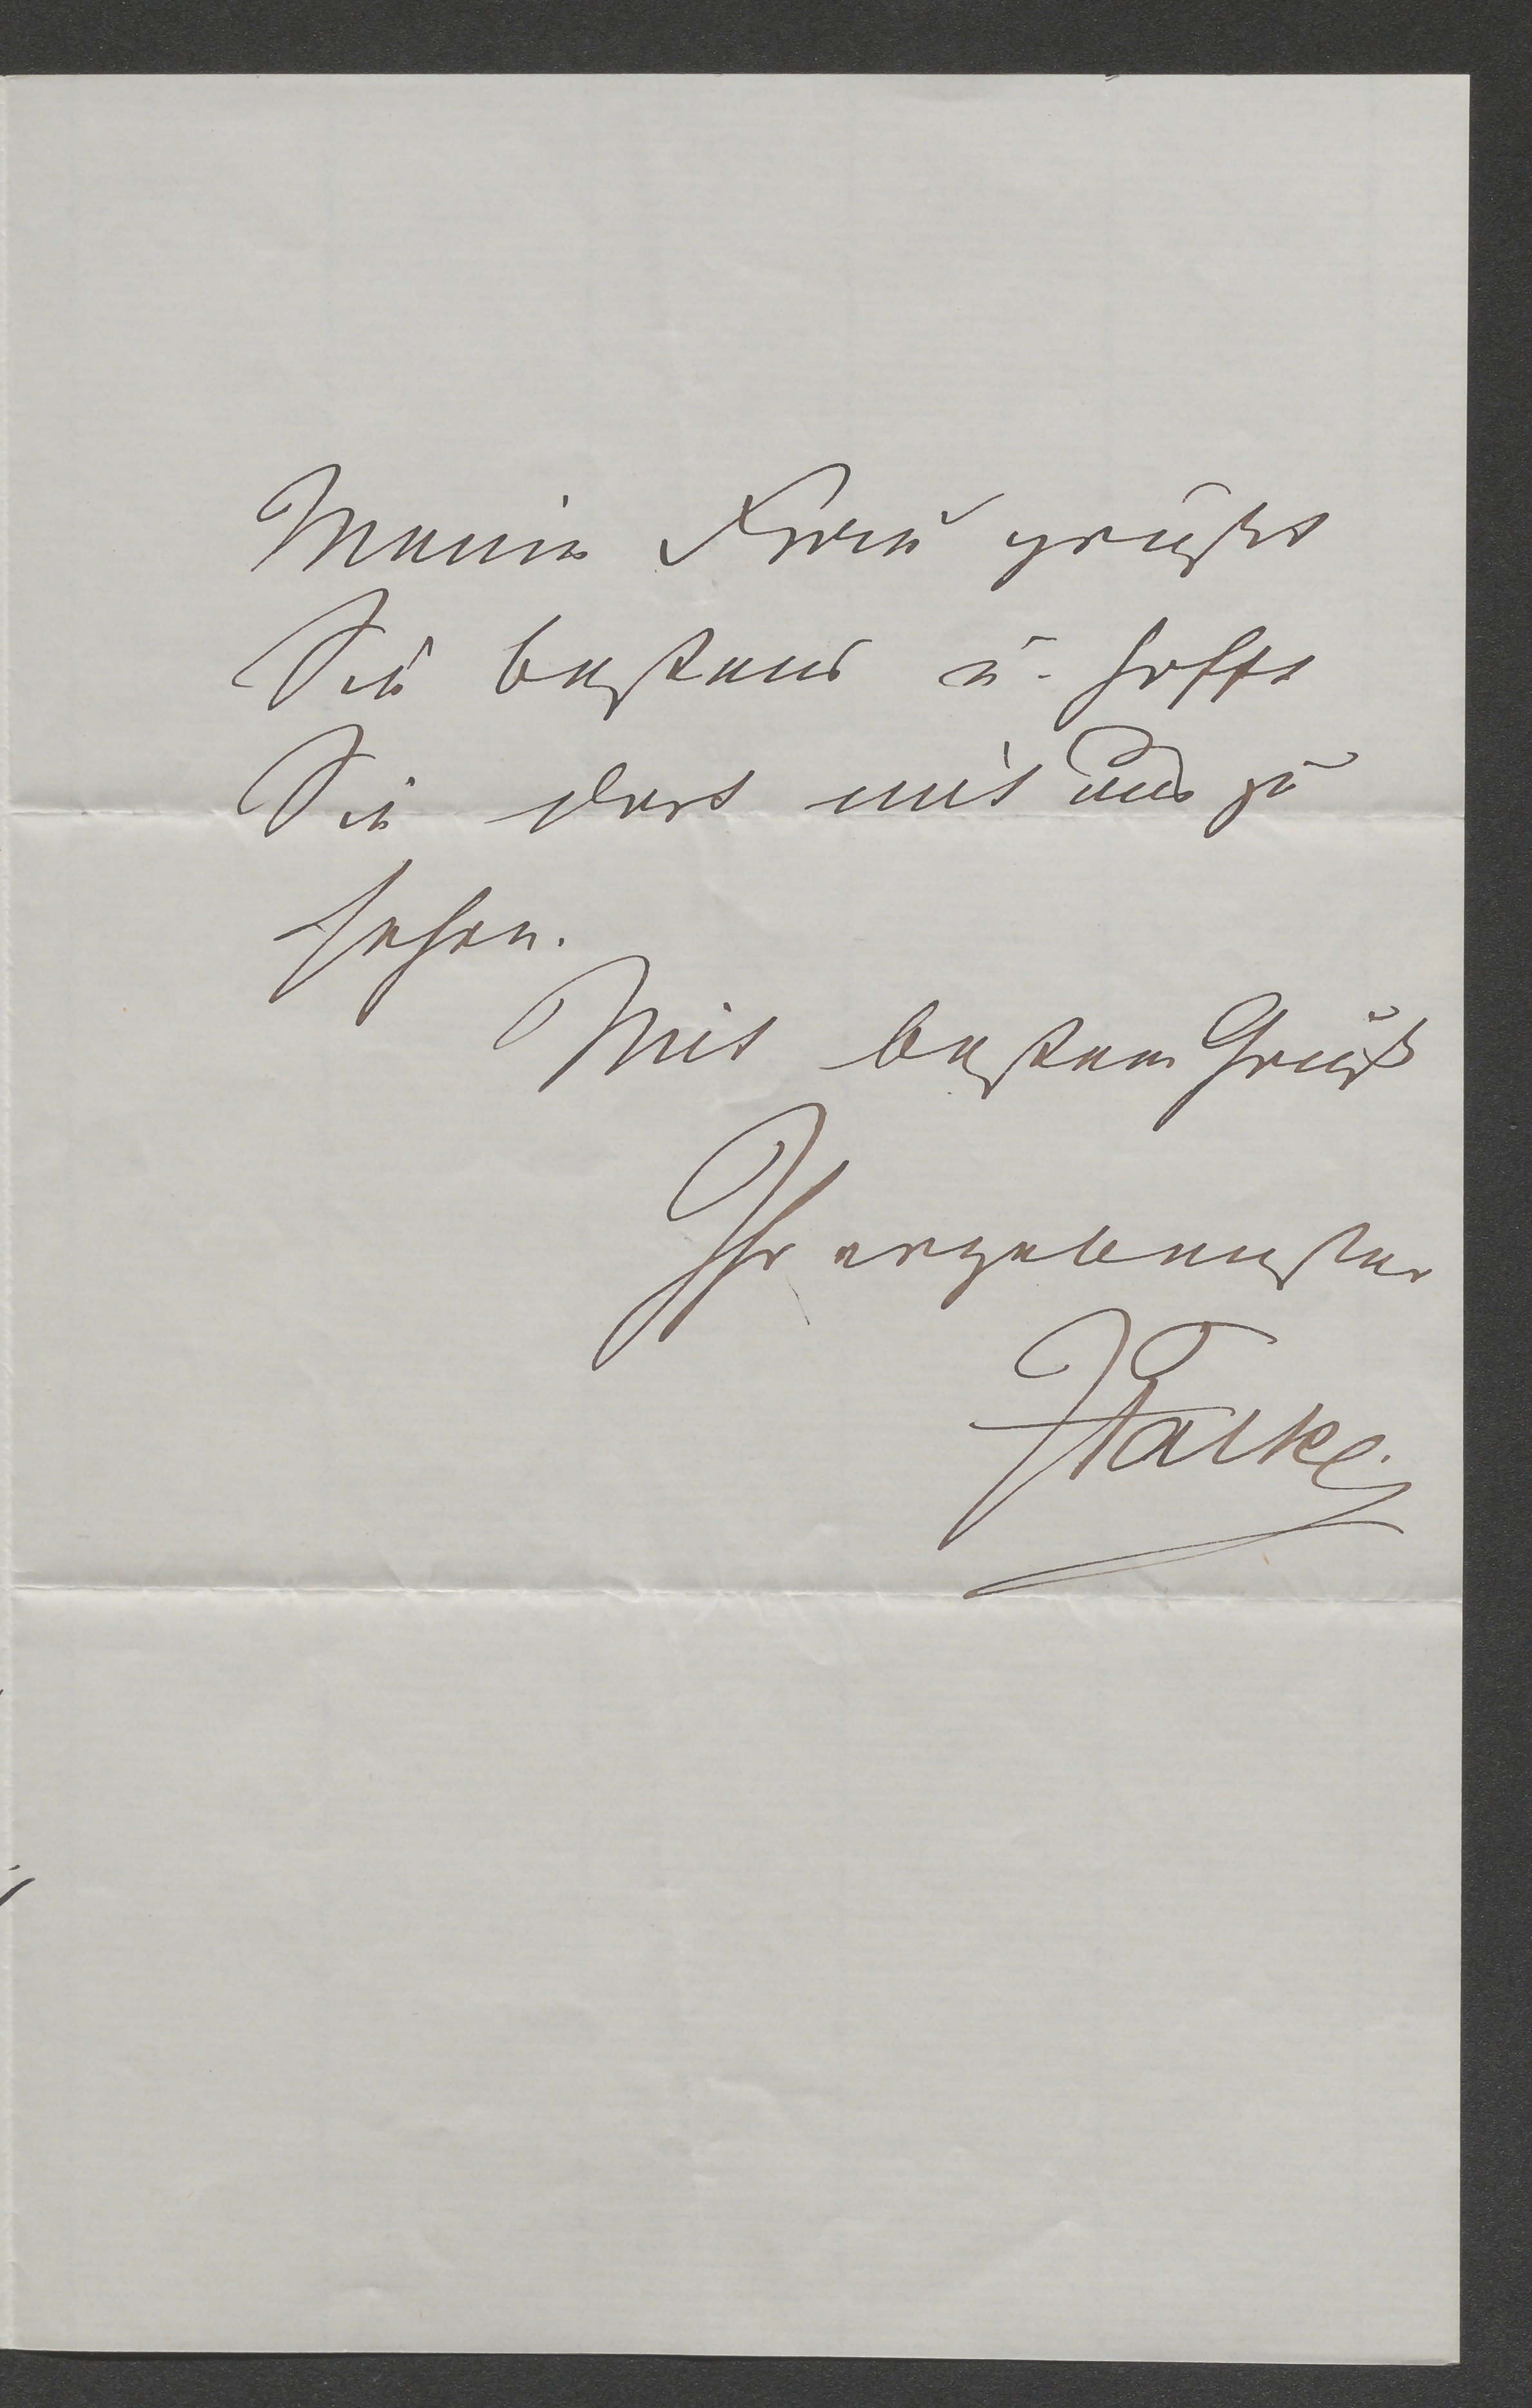 Meine Frau grüßt
Sie bestens u. hofft
Sie dort mit uns zu
sehen.
Mit bestem Gruß
Ihr ergebenster
FFalke